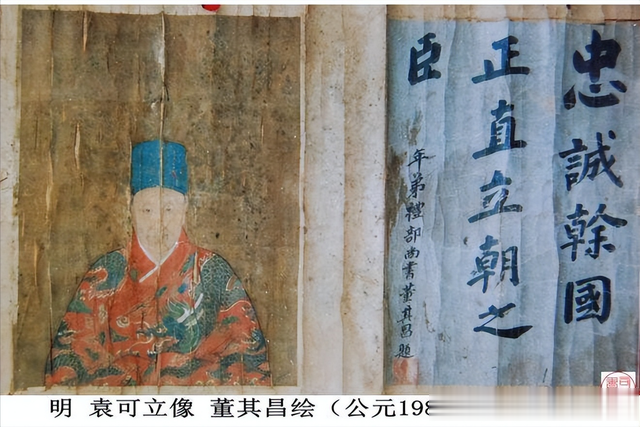 忠誠幹國
正直立朝之
臣
年弟禮部尚書董其昌題
明 袁可立像 董其昌绘（公元198